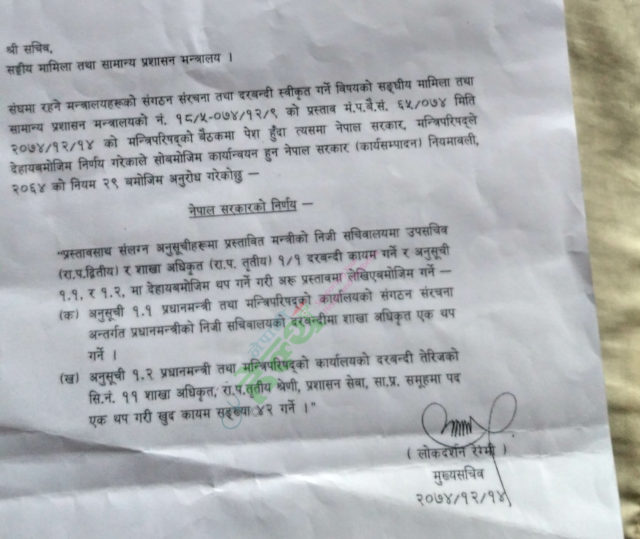 श्री सचिव,
सङ्घीय मामिला तथा सामान्य प्रशासन मन्त्रालय ।
संघमा रहने मन्त्रालयहरूको संगठन संरचना तथा दरबन्दी स्वीकृत गर्ने विषयको सङ्घीय मामिला तथा
सामान्य प्रशासन मन्त्रालयको नं. १८/५-०७४/१२/९ को प्रस्ताव मं.प.बै.सं. ६५/०७४ मिति
२०७४/१२/१४ को मन्त्रिपरिषद्को बैठकमा पेश हुँदा त्यसमा नेपाल सरकार, मन्त्रिपरिषद्ले
देहायबमोजिम निर्णय गरेकाले सोबमोजिम कार्यान्वयन हुन नेपाल सरकार (कार्यसम्पादन) नियमावली,
२०६४ को नियम २९ बमोजिम अनुरोध गरेकोछु –
नेपाल सरकारको निर्णय –
"प्रस्तावसाथ संलग्न अनुसूचीहरूमा प्रस्तावित मन्त्रीको निजी सचिवालयमा उपसचिव
(रा.प.द्वितीय) र शाखा अधिकृत (रा.प. तृतीय) १/१ दरबन्दी कायम गर्ने र अनुसूची
१.१, र १.२, मा देहायबमोजिम थप गर्ने गरी अरू प्रस्तावमा लेखिएबमोजिम गर्ने –
(क) अनुसूची १.१ प्रधानमन्त्री तथा मन्त्रिपरिषद्को कार्यालयको संगठन संरचना
अन्तर्गत प्रधानमन्त्रीको निजी सचिवालयको दरबन्दीमा शाखा अधिकृत एक थप
गर्ने ।
(ख) अनुसूची १.२ प्रधानमन्त्री तथा मन्त्रिपरिषद्को कार्यालयको दरबन्दी तेरिजको
सि.नं. ११ शाखा अधिकृत, रा.प.तृतीय श्रेणी, प्रशासन सेवा, सा.प्र. समूहमा पद
एक थप गरी खुद कायम सङ्ख्या ४२ गर्ने ।"
( लोकदर्शन रेग्मी )
मुख्यसचिव
२०७४/१२/१४